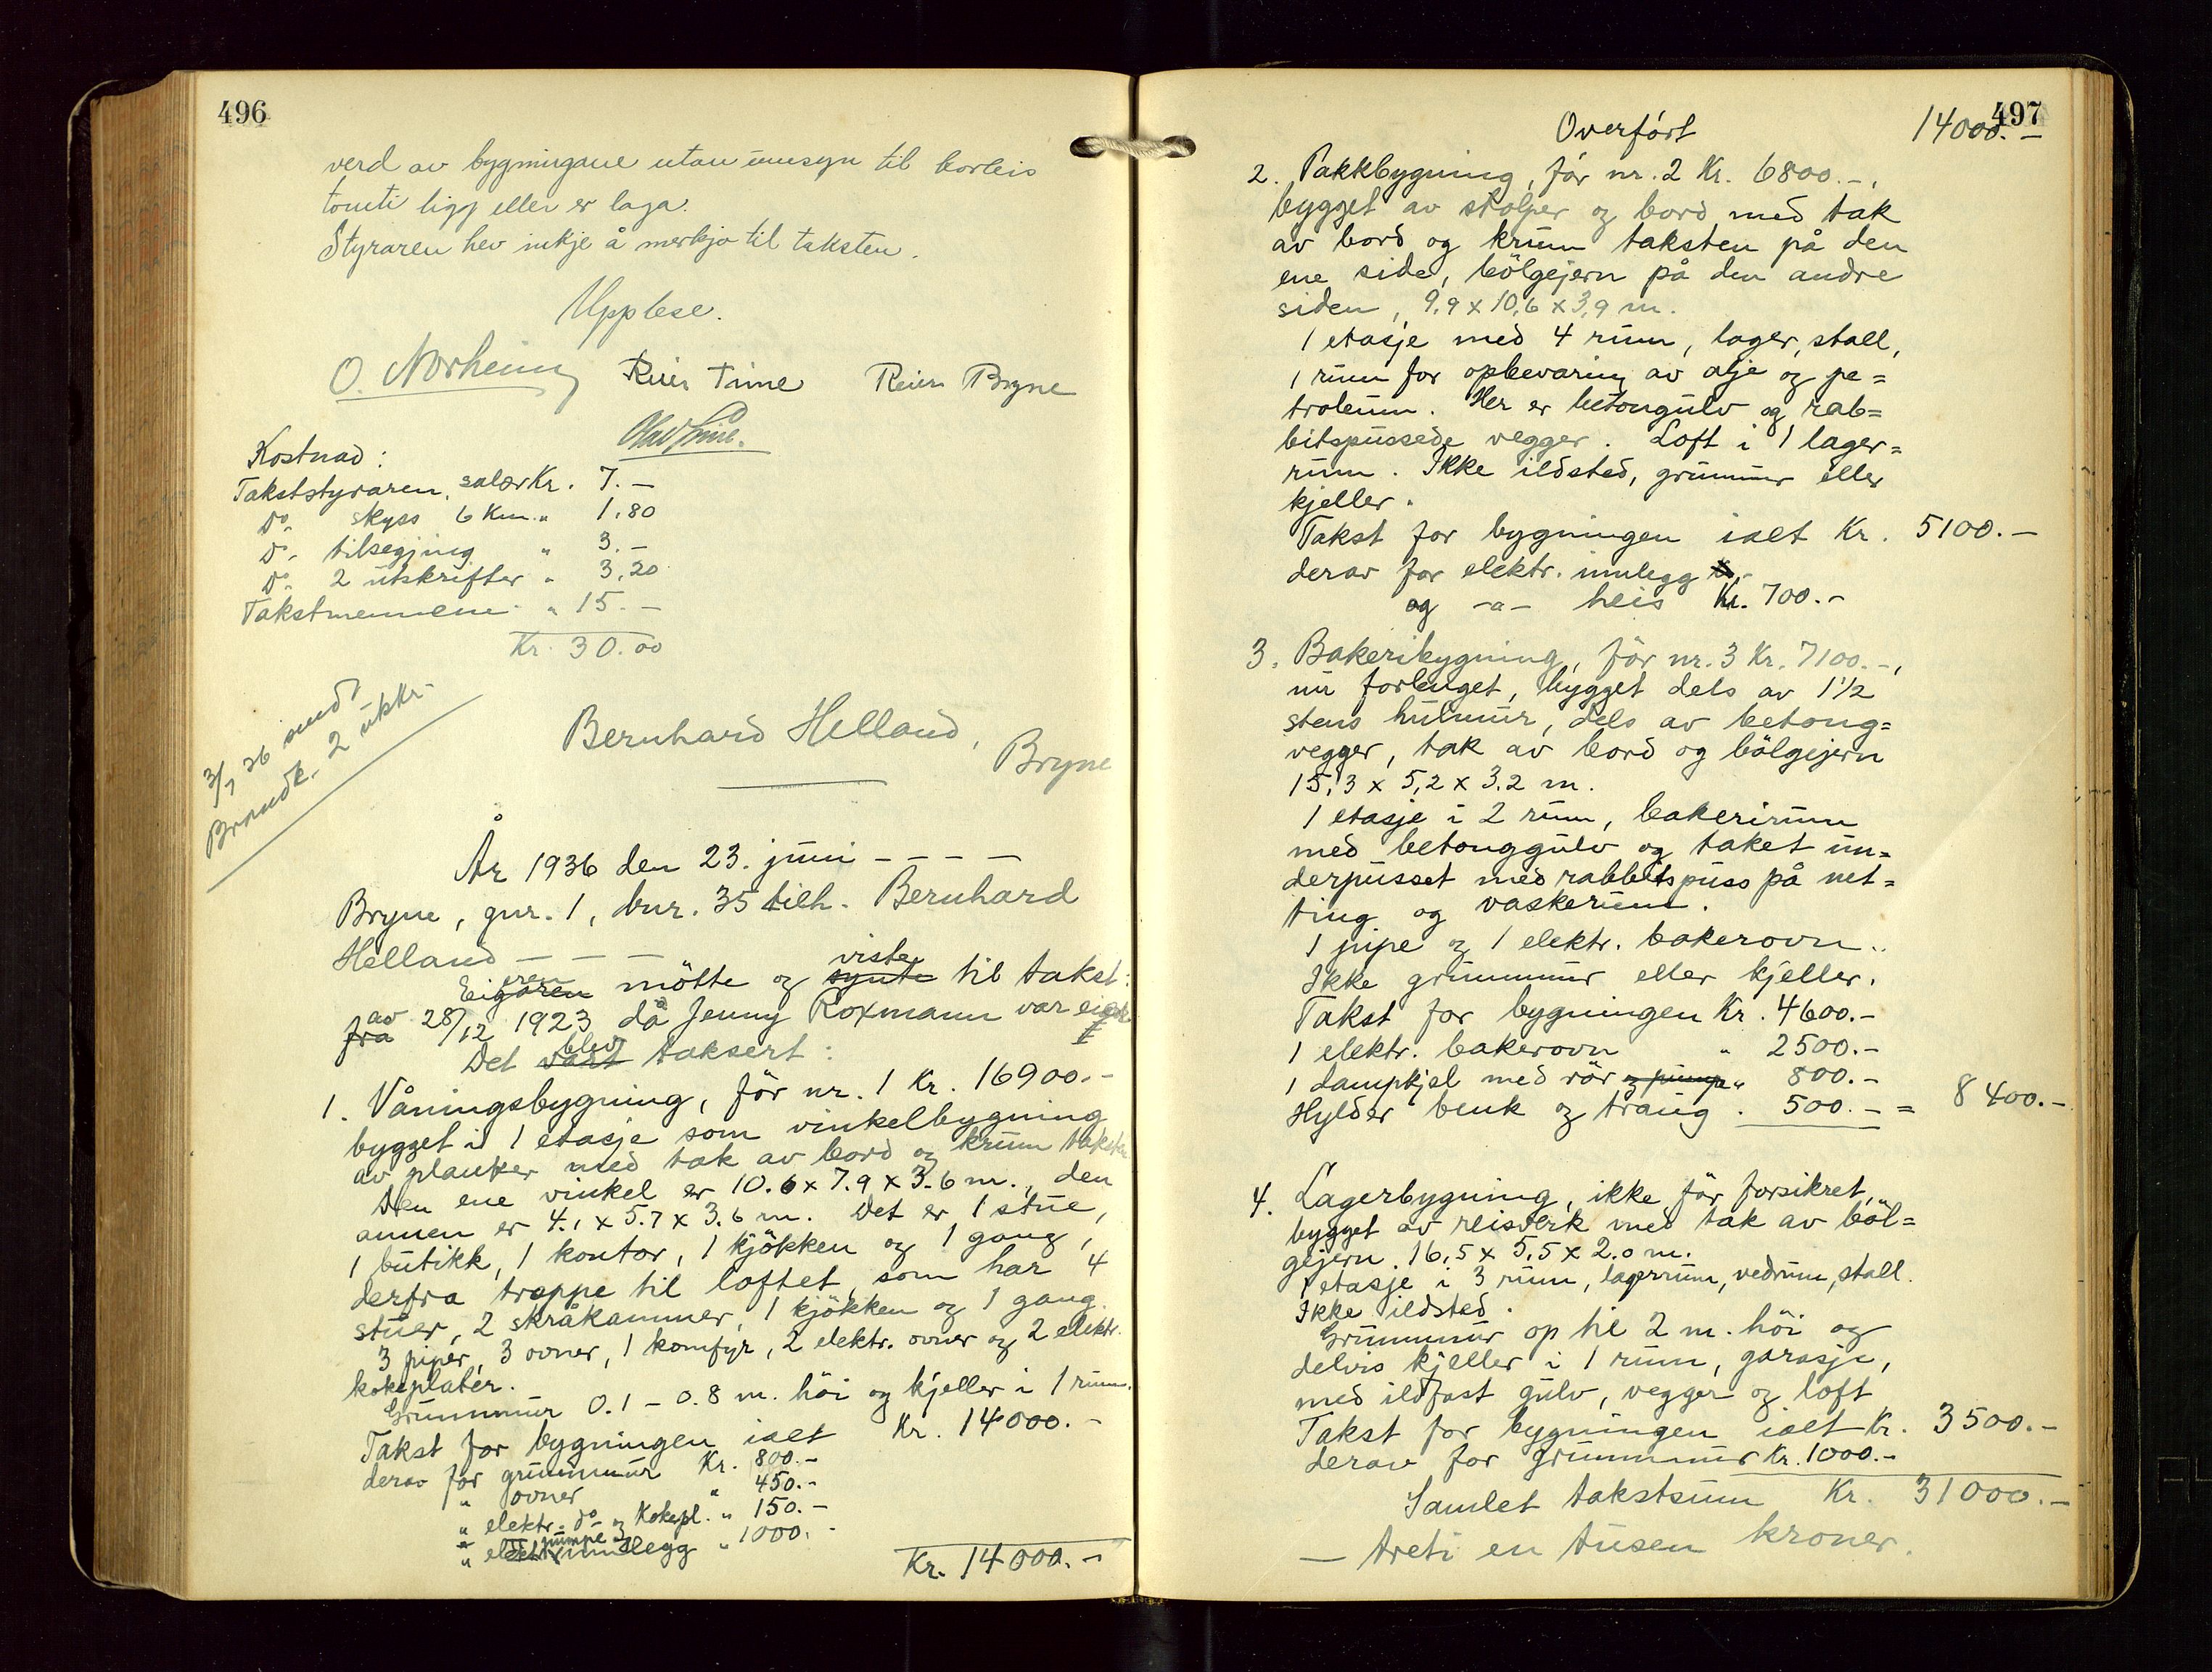 496
verd av bygningane utan umsyn til korleis
tomti ligg eller er laga.
Styraren hev inkje å merkja til taksten.
Upplese.
O. Norheim Reier Time Reier Bryne
Olav Time.
Kostnad:
Takststyraren, salær Kr. 7.-
Do. skyss 6 Km. " 1,80
Do. tilsegjing " 3.-
Do. 2 utskrifter " 3,20
Takstmennene " 15.-
Kr. 30.00
3/7 36 sendt
Brandk. 2 utskr.
Bernhard Helland,
Bryne
År 1936 den 23. juni - - - -
Bryne, gnr. 1, bnr. 35 tilh. Bernhard
Helland - - - -
viste
Eigaren eren møtte og synte til takst:
av
fra 28/12 1923 då Jenny Roxmann var eier
blev
Det vart taksert:
1. Våningsbygning, før nr. 1 Kr. 16900.-
bygget i 1 etasje som vinkelbygning
av planker med tak av bord og krum taksten
Den ene vinkel er 10.6 x 7.9 x 3.6 m., den
annen er 4.1 x 5.7 x 3.6 m. Det er 1 stue,
1 butikk, 1 kontor, 1 kjøkken og 1 gang,
derfra trappe til loftet, som har 4
stuer, 2 skråkammer, 1 kjøkken og 1 gang.
3 piper, 3 ovner, 1 komfyr, 2 elektr. ovner og 2 elektr.
kokeplater.
Grunnmur 0.1 - 0.8 m. höi og kjeller i 1 rum.
Takst for bygningen ialt Kr. 14000.-
derav for grunnmur Kr. 800.-
" ovner " 450.-
" elektr. do. og Kokepl. " 150.-
" pumpe og
" elektr. innlegg " 1000.-
Kr. 14000.-
497
Overført 14000.-
2. Pakkbygning, før nr. 2 Kr. 6800.-,
bygget av stolper og bord med tak
av bord og krum taksten på den
ene side, bölgejern på den andre
siden, 9,9 x 10,6 x 3,9 m.
1 etasje med 4 rum, lager, stall,
1 rum for opbevaring av olje og pe=
troleum. Her er betongulv og rab=
bitspussede vegger. Loft i 1 lager=
rum. Ikke ildsted, grunnmur eller
kjeller.
Takst for bygningen ialt Kr. 5100.-
derav for elektr. innlegg
og -a- heis Kr. 700.-
3. Bakeribygning, før nr. 3 Kr. 7100.-,
nu forlenget, bygget dels av 1½
stens hulmur, dels av betong=
vegger, tak av bord og bölgejern
15,3 x 5,2 x 3.2 m.
1 etasje i 2 rum, bakerirum
med betonggulv og taket un=
derpusset med rabbitspuss på net=
ting og vaskerum.
1 pipe og 1 elektr. bakerovn.
Ikke grunnmur eller kjeller.
Takst for bygningen Kr. 4600.-
1 elektr. bakerovn " 2500.-
1 dampkjel med rör og pumpe " 800.-
Hylder benk og traug . 500.- = 8400.-
4. Lagerbygning, ikke før forsikret,
bygget av reisverk med tak av böl=
gejern. 16,5 x 5,5 x 2.0 m.
1 etasje i 3 rum, lagerrum, vedrum, stall.
Ikke ildsted.
Grunnmur op til 2 m. höi og
delvis kjeller i 1 rum, garasje,
med ildfast gulv, vegger og loft
Takst for bygningen ialt Kr. 3500.-
derav for grunnmur Kr. 1000.-
Samlet takstsum Kr. 31000.-
- treti en tusen kroner.